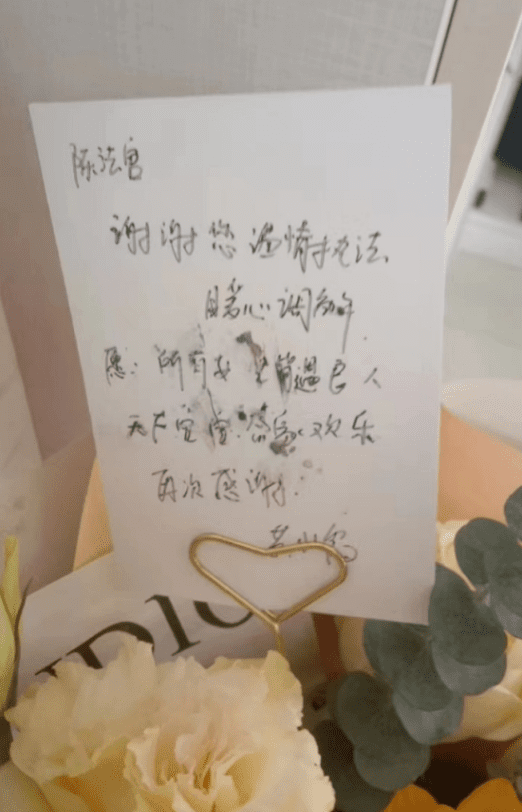 陈法官
谢谢您温情执法
暖心调解
愿:所有女生皆遇良人
天下宝宝皆展欢乐
再次感谢!